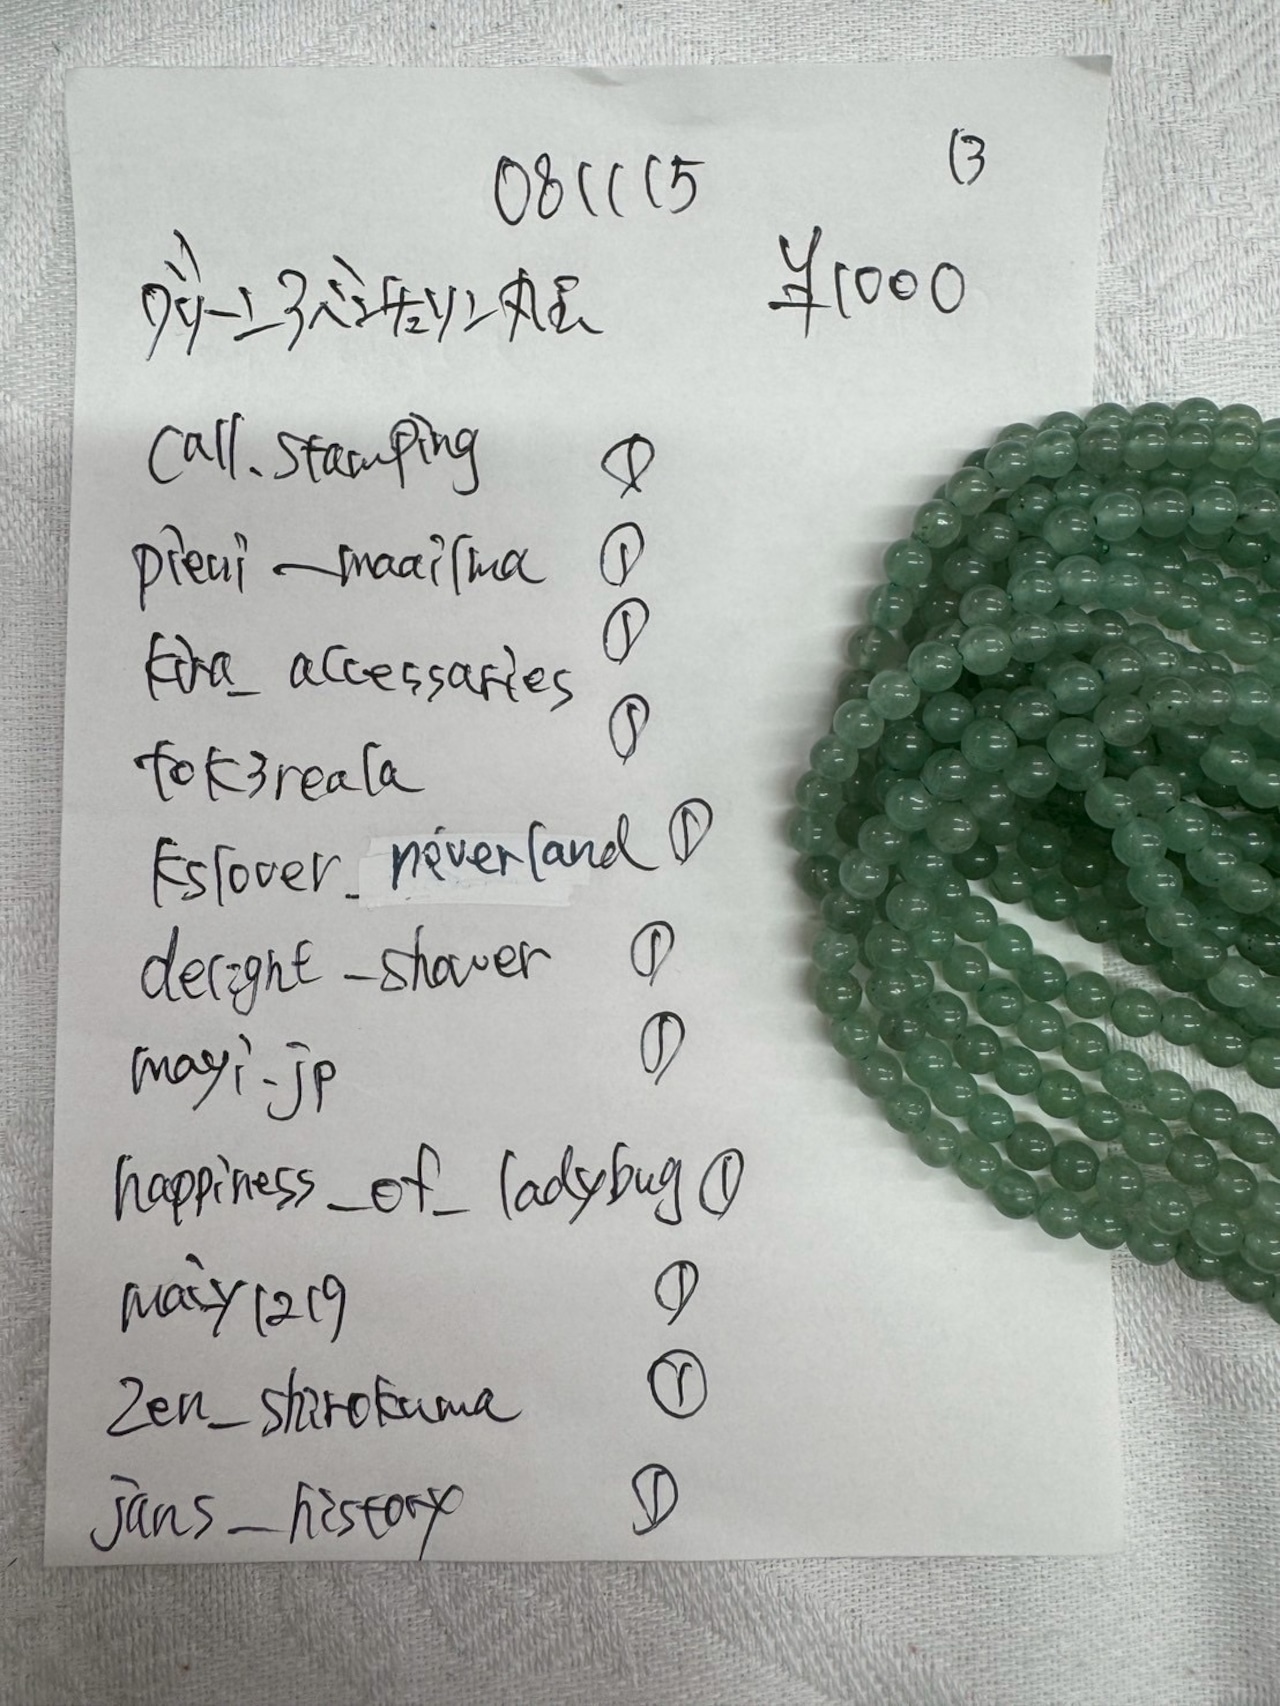 13
081115
グリーンアベンチュリン丸玉 ¥1000
call.stamping ①
pieni_maailma ①
kira_accessaries ①
tok3reala ①
kslover_neverland ①
deright_shower ①
mayi.jp ①
happiness_of_ladybug ①
maiy1219 ①
zen_shirokuma ①
jans_history ①